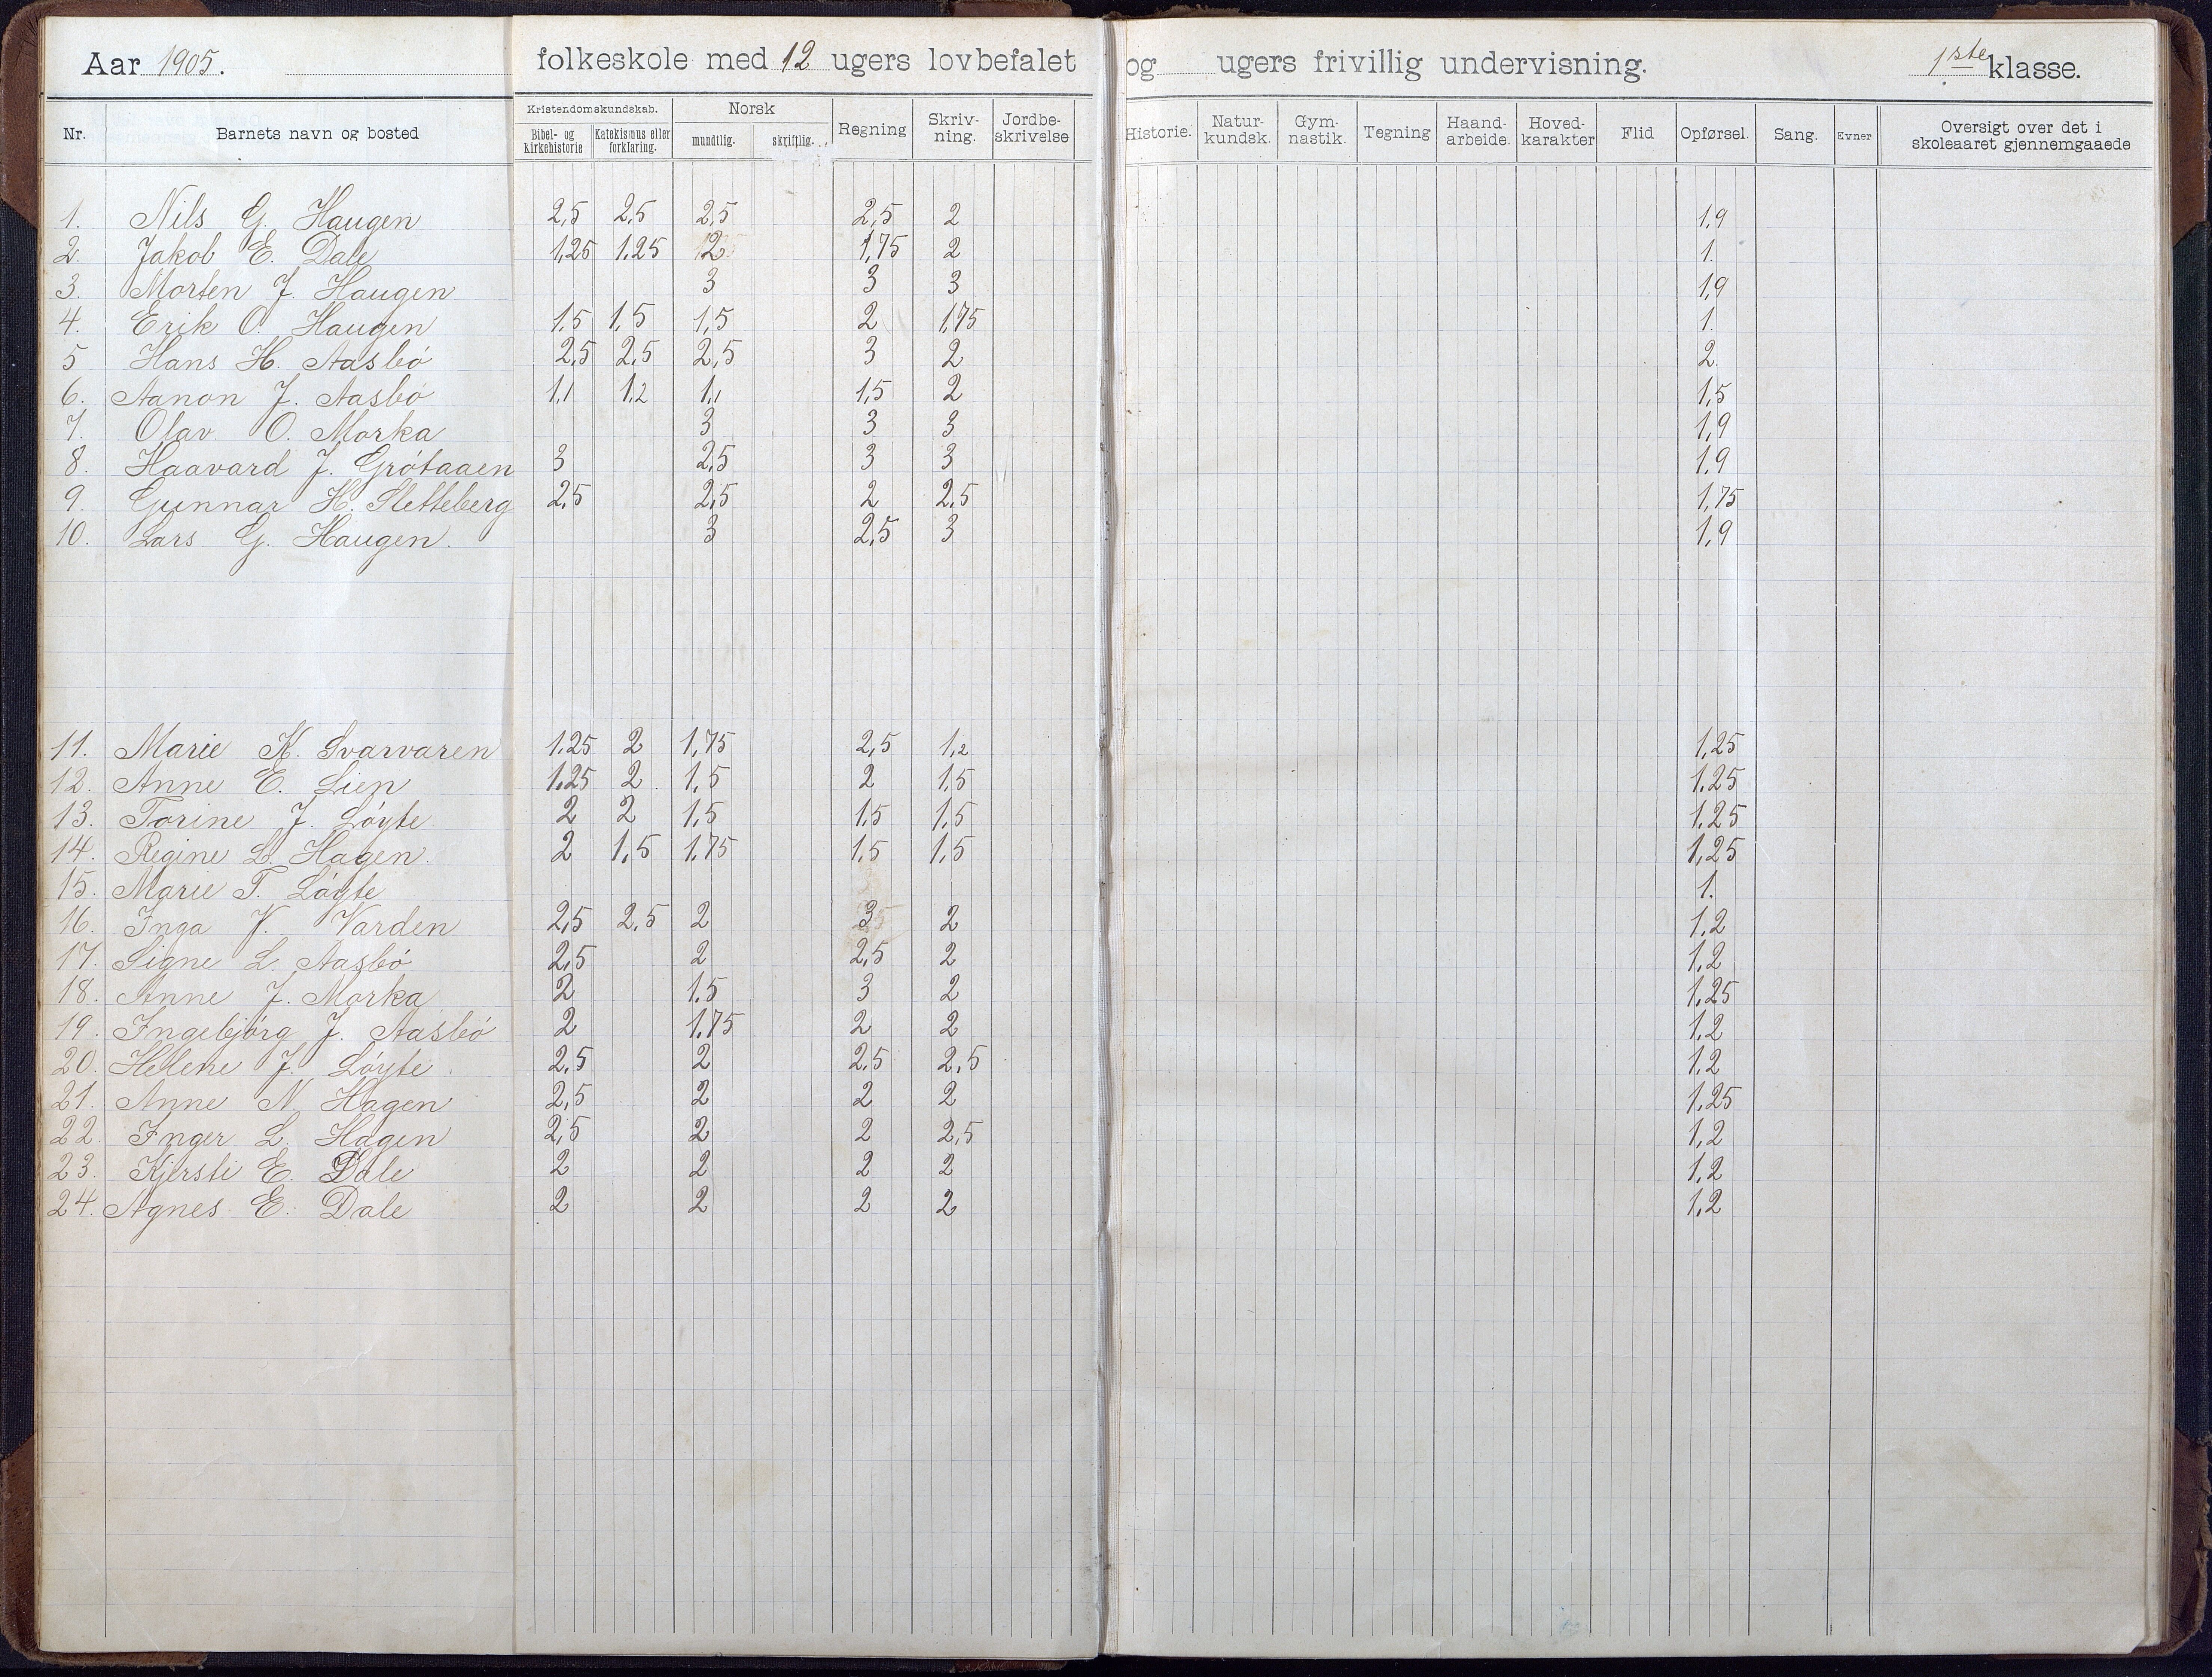 Aar 1905. folkeskole med 12 ugers lovbefalet og ugers frivillig undervisning. 1ste klasse.
Nr. Barnets navn og bosted Kristendomskundskab. Bibel- og kirkehistorie Katekismus eller forklaring. Norsk mundtlig. skriftlig. Regning Skriv-ning. Jordbe-skrivelse Historie. Natur-kundsk. Gym-nastik. Tegning Haand-arbeide. Hoved-karakter Flid Opførsel. Sang. Evner Oversigt over det i skoleaaret gjennemgaaede
1. Nils G. Haugen 2,5 2,5 2,5 2,5 2 1,9
2. Jakob E. Dale 1,25 1,25 2 1,75 2 1.
3. Morten J. Haugen 3 3 3 1,9
4. Erik O. Haugen 1,5 1,5 1,5 2 1,75 1.
5 Hans H. Aasbö 2,5 2,5 2,5 3 2 2.
6. Aanon J. Aasbö 1,1 1,2 1,1 1,5 2 1,5
7. Olav O. Morka 3 3 3 1,9
8. Haavard J. Grötaaen 3 2,5 3 3 1,9
9. Gunnar H. Sletteberg 2,5 2,5 2 2,5 1,75
10. Lars G. Haugen. 3 2,5 3 1,9
11. Marie K. Svarvaren 1.25 2 1,75 2,5 1,2 1,25
12. Anne E. Lien 1.25 2 1,5 2 1,5 1.25
13. Torine J. Löyte 2 2 1,5 1,5 1,5 1.25
14. Regine L. Hagen. 2 1,5 1,75 1,5 1,5 1,25
15. Marie T. Löyte 1.
16. Inga K. Varden 2,5 2,5 2 3 2 1,2
17. Signe L. Aasbö 2,5 2 2,5 2 1,2
18. Anne J. Morka 2 1.5 3 2 1,25
19. Ingebjörg J. Aasbö 2 1.75 2 2 1,2
20. Helene J. Löyte 2,5 2 2,5 2,5 1,2
21. Anne N. Hagen 2,5 2 2 2 1,25
22. Inger L. Hagen 2,5 2 2 2,5 1,2
23. Kjersti E. Dale 2 2 2 2 1,2
24. Agnes E. Dale 2 2 2 2 1,2